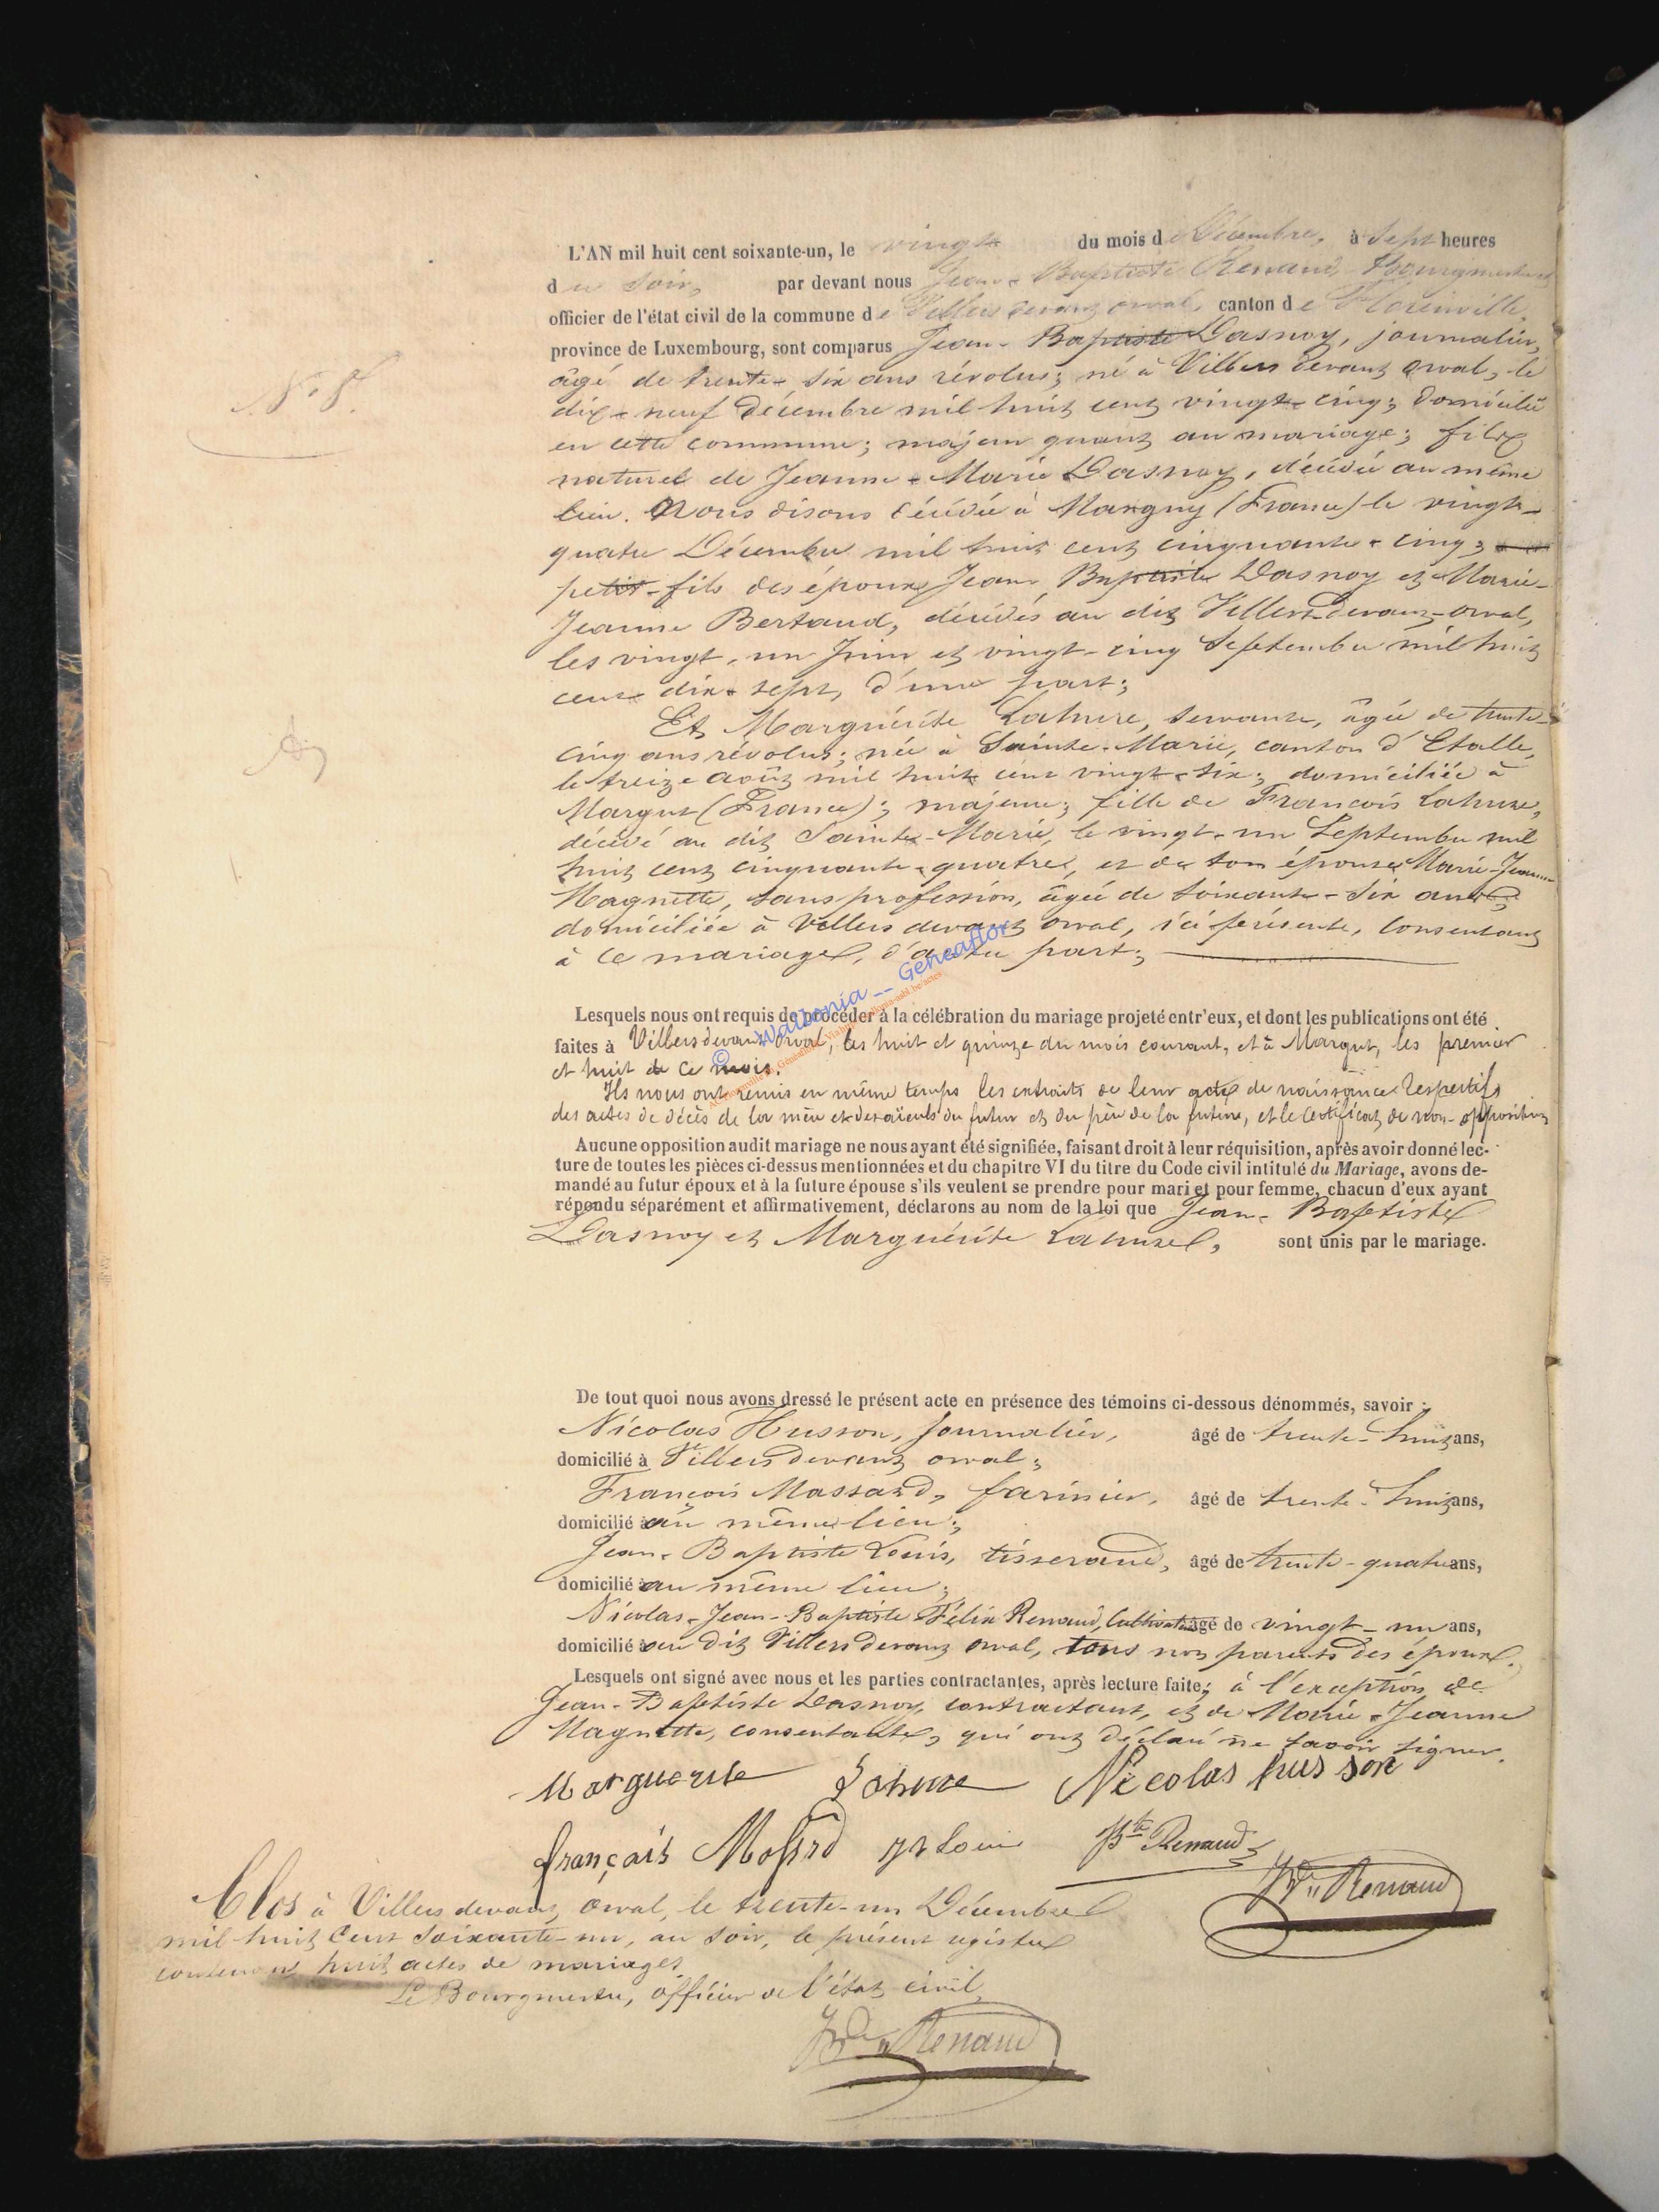 L'AN mil huit cent soixante-un, le vingt du mois de Décembre, à sept heures
du soir, par devant nous Jean-Baptiste Renaud, Bourgmestre et
officier de l'état civil de la commune de Villers devant orval, canton de Florenville,
province de Luxembourg, sont comparus Jean-Baptiste Dasnoy, journalier,
âgé de trente-six ans révolus; né à Villers devant orval, le
dix-neuf Décembre mil huit cent vingt-cinq; domicilié
en cette commune; majeur quant au mariage; fils
naturel de Jeanne-Marie Dasnoy, décédée au même
lieu. Nous disons décédée à Margny (France) le vingt-
quatre Décembre mil huit cent cinquante-cinq;
petit-fils des époux Jean Baptiste Dasnoy et Marie-
Jeanne Bertaud, décédés au dit Villers-devant-orval,
les vingt-un Juin et vingt-cinq Septembre mil huit
cent dix-sept, d'une part;
Et Marguérite Lahure, servante, âgée de trente-
cinq ans révolus; née à Sainte-Marie, canton d'Etalle,
le treize août mil huit cent vingt-six; domiciliée à
Margut (France); majeure; fille de François Lahure,
décédé au dit Sainte-Marie, le vingt-un Septembre mil
huit cent cinquante-quatre, et de son épouse Marie-Jeanne
Magnette, sans profession, âgée de soixante-six ans,
domiciliée à Villers devant orval, ici présente, consentant
à ce mariage, d'autre part;
Lesquels nous ont requis de procéder à la célébration du mariage projeté entr'eux, et dont les publications ont été
faites à Villers devant Orval, les huit et quinze du mois courant, et à Margut, les premier
et huit de ce mois.
Ils nous ont remis en même temps les extraits de leur acte de naissance respectifs
des actes de décès de la mère et des aïeuls du futur et du père de la future, et le certificat de non-opposition
Aucune opposition audit mariage ne nous ayant été signifiée, faisant droit à leur réquisition, après avoir donné lec-
ture de toutes les pièces ci-dessus mentionnées et du chapitre VI du titre du Code civil intitulé du Mariage, avons de-
mandé au futur époux et à la future épouse s'ils veulent se prendre pour mari et pour femme, chacun d'eux ayant
répondu séparément et affirmativement, déclarons au nom de la loi que Jean-Baptiste
Dasnoy et Marguérite Lahure, sont unis par le mariage.
De tout quoi nous avons dressé le présent acte en présence des témoins ci-dessous dénommés, savoir :
Nicolas Husson, journalier, âgé de trente-huit ans,
domicilié à Villers devant orval;
François Massard, farinier, âgé de trente-huit ans,
domicilié au même lieu;
Jean-Baptiste Louis, tisserand, âgé de trente-quatre ans,
domicilié au même lieu;
Nicolas-Jean-Baptiste Félix Renaud, Cultivateur âgé de vingt-un ans,
domicilié au dit Villers devant orval, tous non parents des époux.
Lesquels ont signé avec nous et les parties contractantes, après lecture faite; à l'exception de
Jean-Baptiste Dasnoy, contractant, et de Marie-Jeanne
Magnette, consentante, qui ont déclaré ne savoir signer.
Marguerite Lahure Nicolas husson
françois Massard Louis Bte Renaud
Renaud
Clos à Villers devant orval, le trente-un Décembre
mil huit cent soixante-un, au soir, le présent registre
contenant huit actes de mariages
Le Bourgmestre, officier de l'état civil,
Renaud
N° 8.
© Wallonia -- Geneaflor